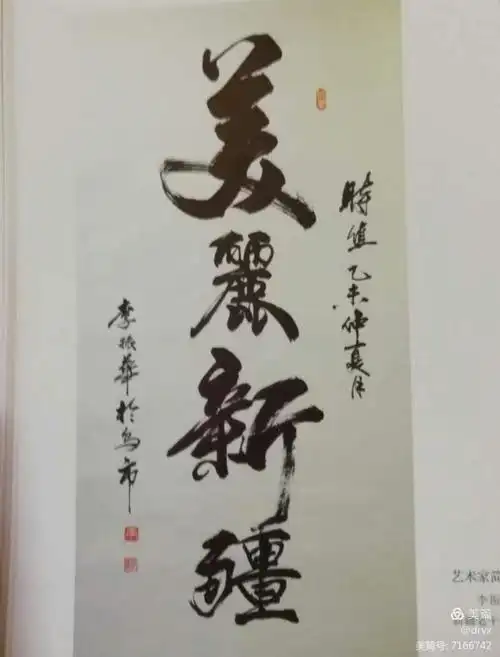 美麗新疆
時維乙未仲夏月
李振華於烏市
艺术家简
李振
美篇
@drvx
美篇号: 7166742